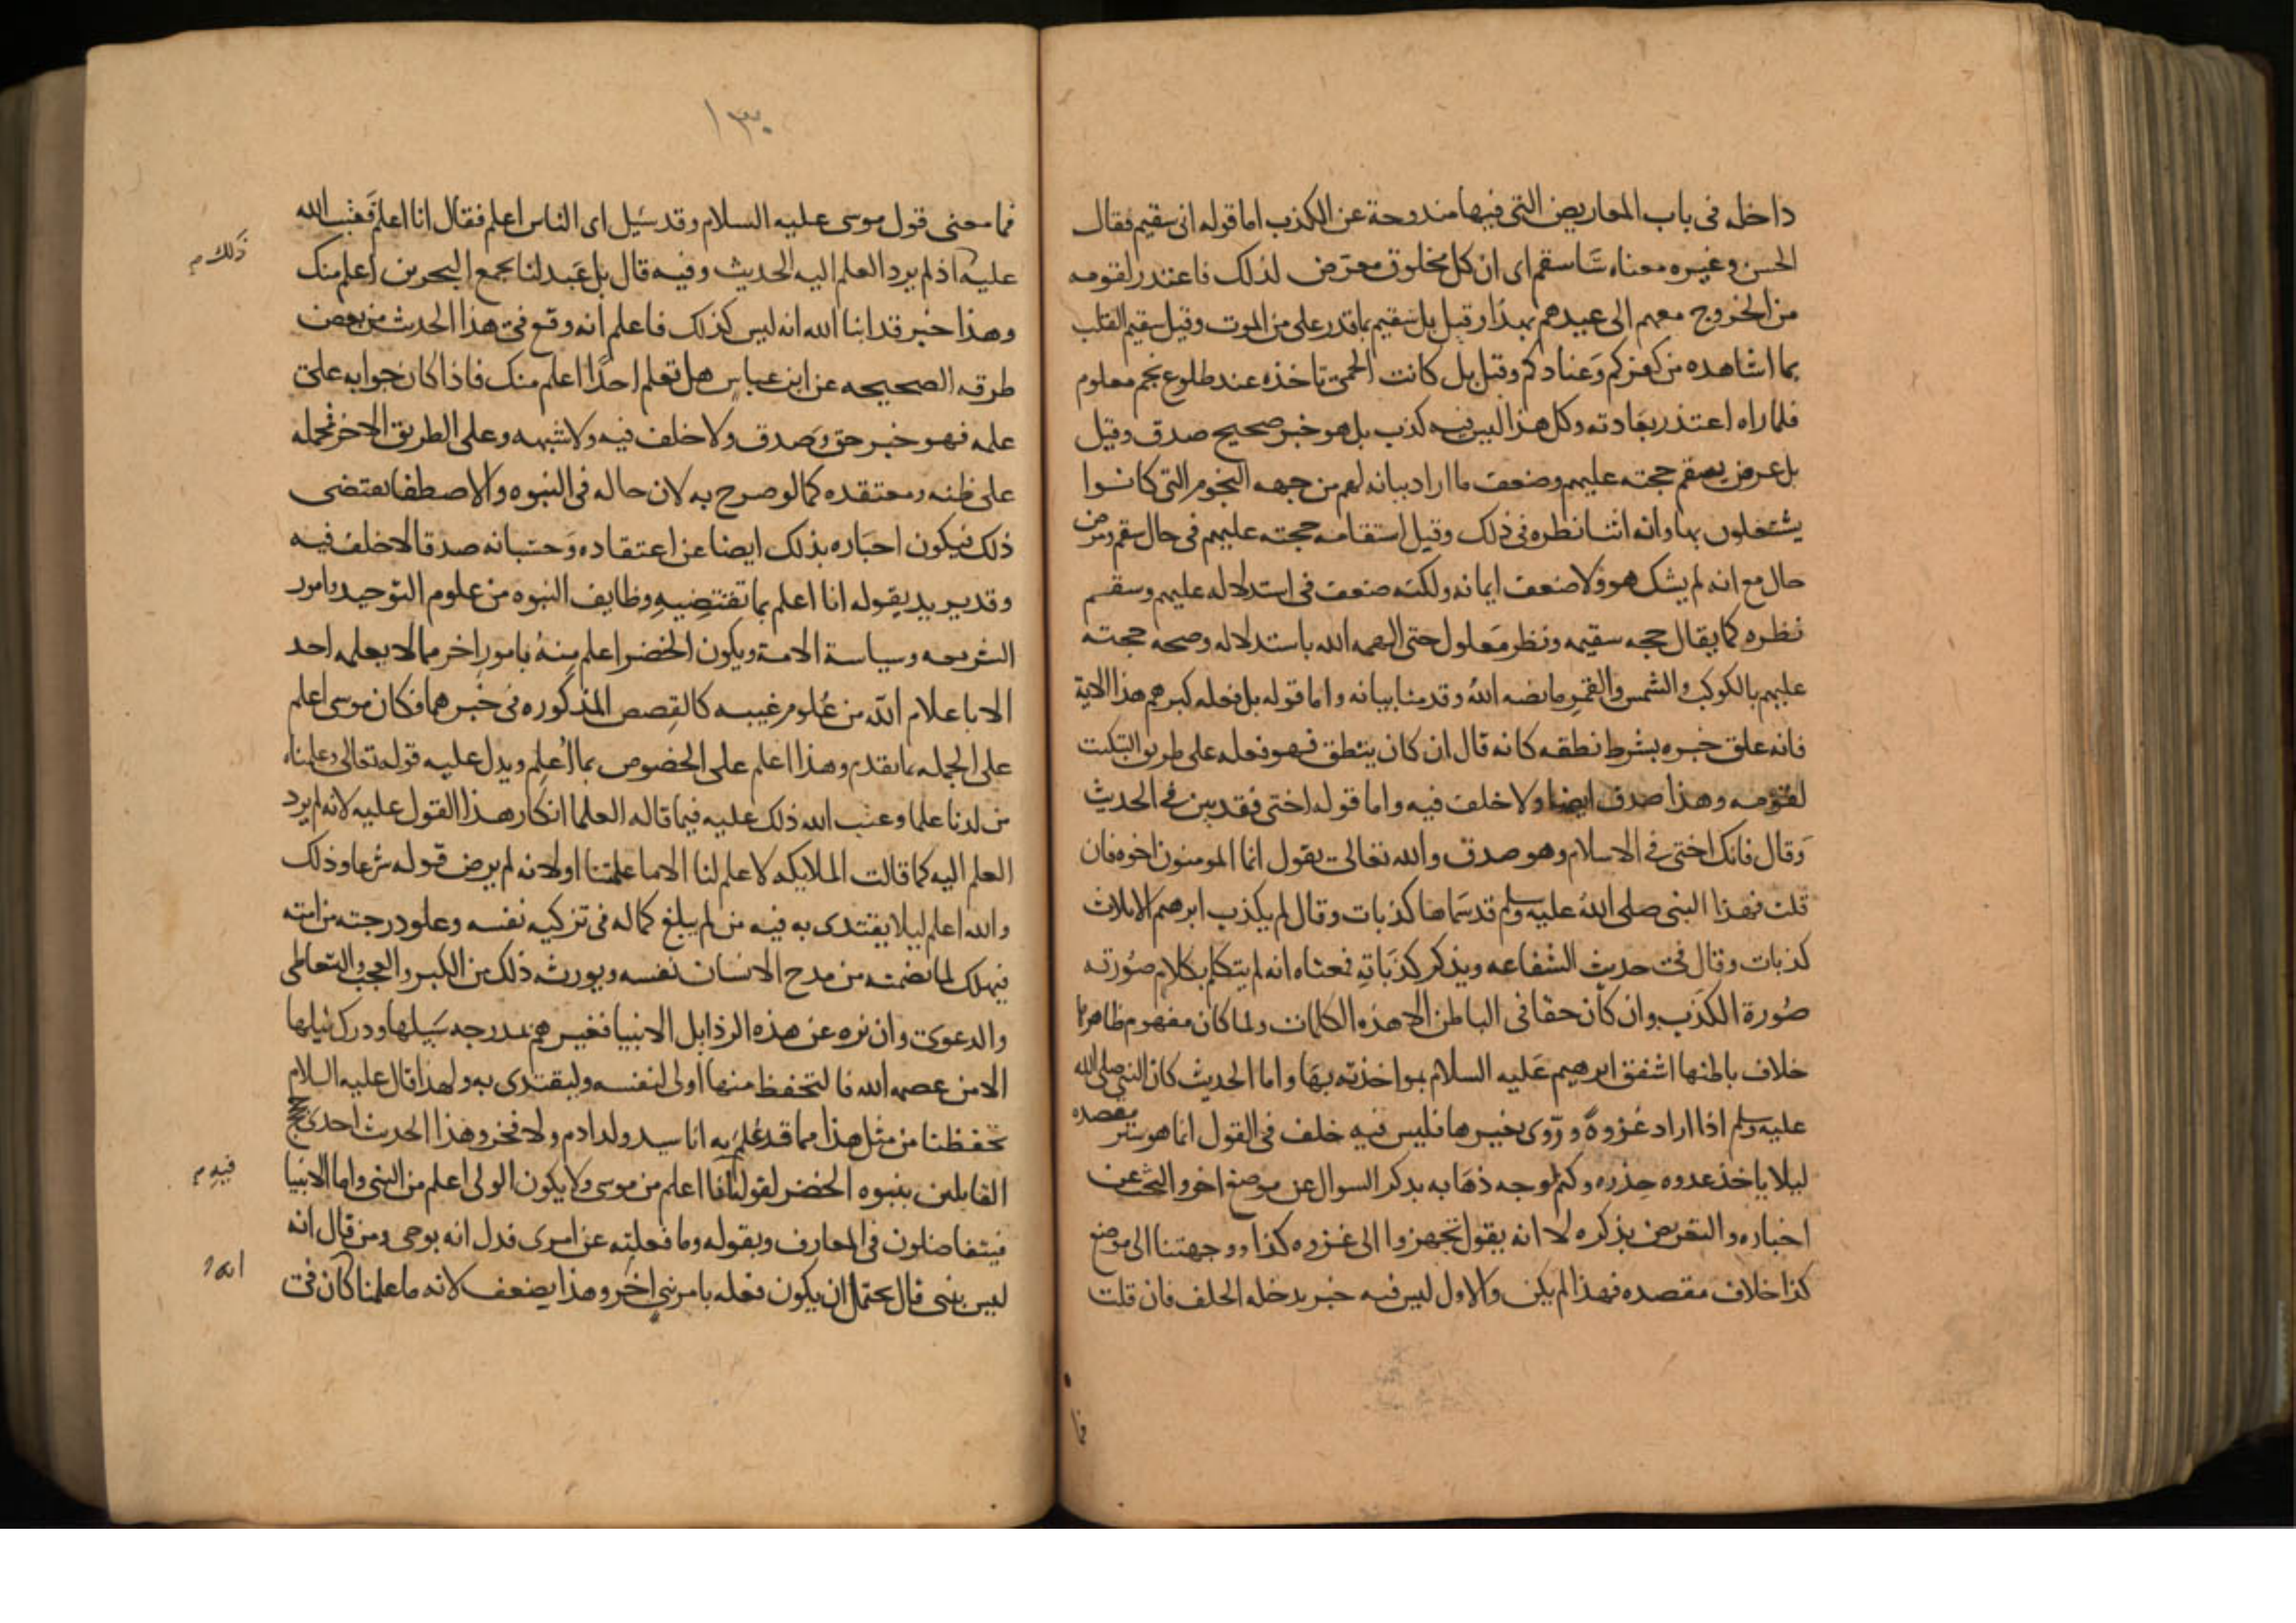 داخله فى باب المعاريض التى فيها مندوحة عن الكذب اما قوله انى سقيم فقال
الحسن وغيره معناه ساسقم اى ان كل مخلوق معرض لذلك فاعتذر لقومه
من الخروج معهم الى عيدهم بهذا وقيل بل سقيم بما قدر على من الموت وقيل سقيم القلب
بما اشاهده من كفركم وعنادكم وقيل بل كانت الحمى تاخذه عند طلوع نجم معلوم
فلما راه اعتذر بعادته وكل هذا ليس فيه كذب بل هو خبر صحيح صدق وقيل
بل عرض بسقم حجته عليهم وضعف ما اراد بيانه لهم من جهه النجوم التى كانوا
يشتغلون بها وانه اثنا نظره فى ذلك وقيل استقامه حجته عليهم فى حال سقم ومرض
حال مع انه لم يشك هو ولا ضعف ايمانه ولكنه ضعف فى استدلاله عليهم وسقم
نظره كما يقال حجه سقيمه ونظر معلول حتى الهمه الله باستدلاله وصحه حجته
عليهم بالكوكب والشمس والقمر ما نصه الله وقدمنا بيانه واما قوله بل فعله كبيرهم هذا الاية
فانه علق خبره بشرط نطقه كانه قال ان كان ينطق فهو فعله على طريق التبكيت
لقومه وهذا صدق ايضا ولا خلف فيه واما قوله اختى فقد بين فى الحديث
وقال فانك اختى فى الاسلام وهو صدق والله تعالى يقول انما المومنون اخوه فان
قلت فهذا النبى صلى الله عليه وسلم قد سماها كذبات وقال لم يكذب ابرهيم الا ثلاث
كذبات وقال فى حديث الشفاعه ويذكر كذباته فمعناه انه لم يتكلم بكلام صورته
صورة الكذب وان كان حقا فى الباطن الا هذه الكلمات ولما كان مفهوم ظاهرها
خلاف باطنها اشفق ابرهيم عليه السلام بمواخذته بها واما الحديث كان النبى صلى الله
عليه وسلم اذا اراد غزوة وروى بغيرها فليس فيه خلف فى القول انما هو ستر مقصده
ليلا ياخذ عدوه حذره وكتم لوجه ذهابه بذكر السوال عن موضع اخر والبحث عن
اخباره والتعريض بذكره لا انه يقول تجهزوا الى غزوه كذا ووجهتنا الى موضع
كذا خلاف مقصده فهذا لم يكن والاول ليس فيه خبر يدخله الخلف فان قلت
فما
١٣٠
فما معنى قول موسى عليه السلام وقد سيل اى الناس اعلم فقال انا اعلم فعتب الله
عليه اذ لم يرد العلم اليه الحديث وفيه قال بل عبد لنا بمجمع البحرين اعلم منك
ذلك م
وهذا خبر قد انبا الله انه ليس كذلك فاعلم انه وقع فى هذا الحديث من بعض
طرقه الصحيحه عن ابن عباس هل تعلم احدا اعلم منك فاذا كان جوابه على
علمه فهو خبر حق وصدق ولا خلف فيه ولا شبهه وعلى الطريق الاخر فمحمله
على ظنه ومعتقده كما لو صرح به لان حاله فى النبوه والاصطفا يقتضى
ذلك فيكون اخباره بذلك ايضا عن اعتقاده وحسبانه صدقا لا خلف فيه
وقد يريد بقوله انا اعلم بما تقتضيه وظايف النبوه من علوم التوحيد وامور
الشريعه وسياسة الامة ويكون الخضر اعلم منه بامور اخر مما لا يعلمه احد
الا باعلام الله من علوم غيبه كالقصص المذكوره فى خبرهما فكان موسى اعلم
على الجمله بما تقدم وهذا اعلم على الخصوص بما اعلم ويدل عليه قوله تعالى وعلمناه
من لدنا علما وعتب الله ذلك عليه فيما قاله العلما انكار هذا القول عليه لانه لم يرد
العلم اليه كما قالت الملايكه لا علم لنا الا ما علمتنا او لانه لم يرض قوله شرعا وذلك
والله اعلم ليلا يقتدى به فيه من لم يبلغ كماله فى تزكيه نفسه وعلو درجته من امته
فيهلك لما تضمنه من مدح الانسان نفسه ويورث ذلك من الكبر والعجب والتعاطى
والدعوى وان نزه عن هذه الرذايل الانبيا فغيرهم بمدرجه سبيلها ودرك نيلها
الا من عصمه الله فالتحفظ منها اولى لنفسه وليقتدى به ولهذا قال عليه السلام
تحفظنا من مثل هذا مما قد علم به انا سيد ولد ادم ولا فخر وهذا الحديث احدى حجج
القايلين بنبوه الخضر لقوله انا اعلم من موسى ولا يكون الولى اعلم من النبى واما الانبيا
فيه م
فيتفاضلون فى المعارف وبقوله وما فعلته عن امرى فدل انه بوحى ومن قال انه
ليس بنبى قال يحتمل ان يكون فعله بامر نبى اخر وهذا يضعف لانه ما علمنا كان فى
انه